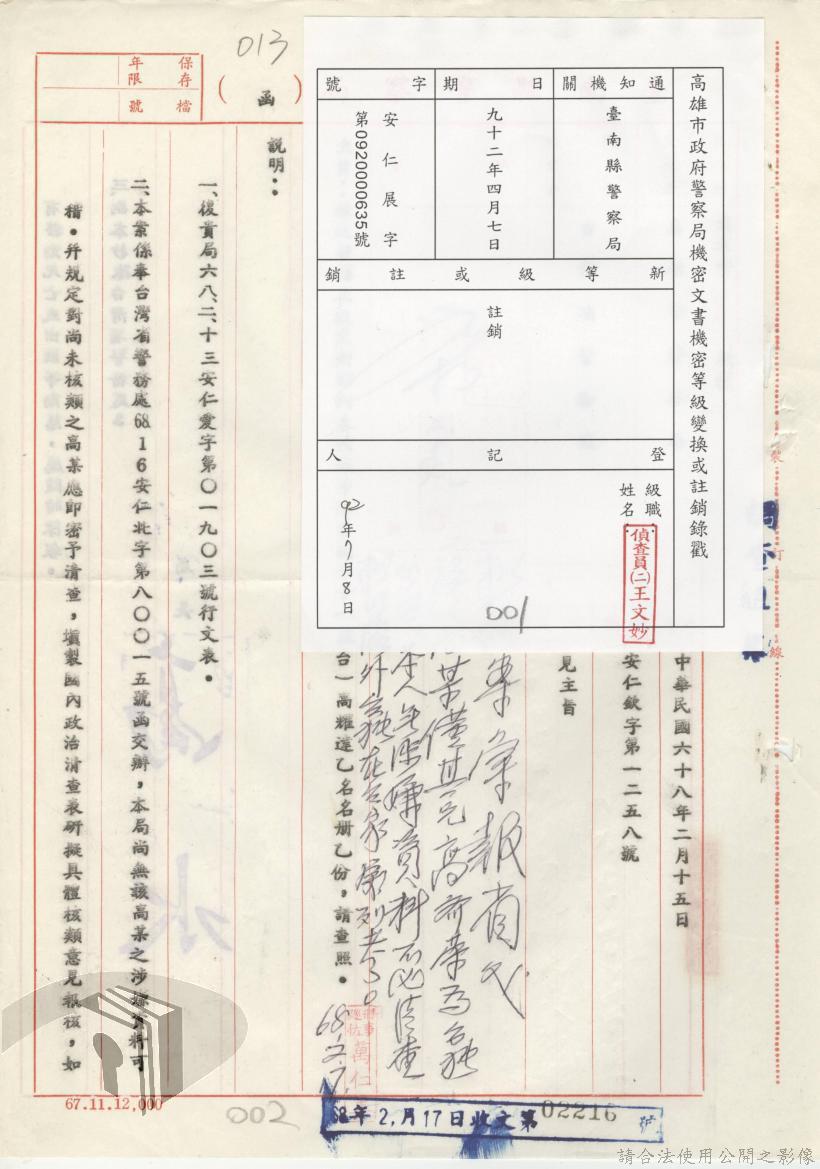 013
保存年限
檔號
(函)
高雄市政府警察局機密文書機密等級變換或註銷錄戳
通知機關
臺南縣警察局
日期
九十二年四月七日
字號
安仁展字
第0920000635號
新等級或註銷
註銷
登記人
級職：
姓名：
偵查員(二)王文妙
92年7月8日
001
裝訂線
中華民國六十八年二月十五日
安仁欽字第一二五八號
見主旨
台）高耀達乙名名册乙份，請查照。
說明：
一、復貴局六八、二、十三安仁愛字第〇一九〇三號行文表。
二、本案係奉台灣省警務處68 1 6安仁北字第八〇〇一五號函交辦，本局尚無該高某之涉嫌資料可
稽。幷規定對尚未核類之高某應即密予清查，填製國內政治清查表研擬具體核類意見報核，如
68.2.17.
67.11.12,000
002
68年2月17日收文第02216
請合法使用公開之影像